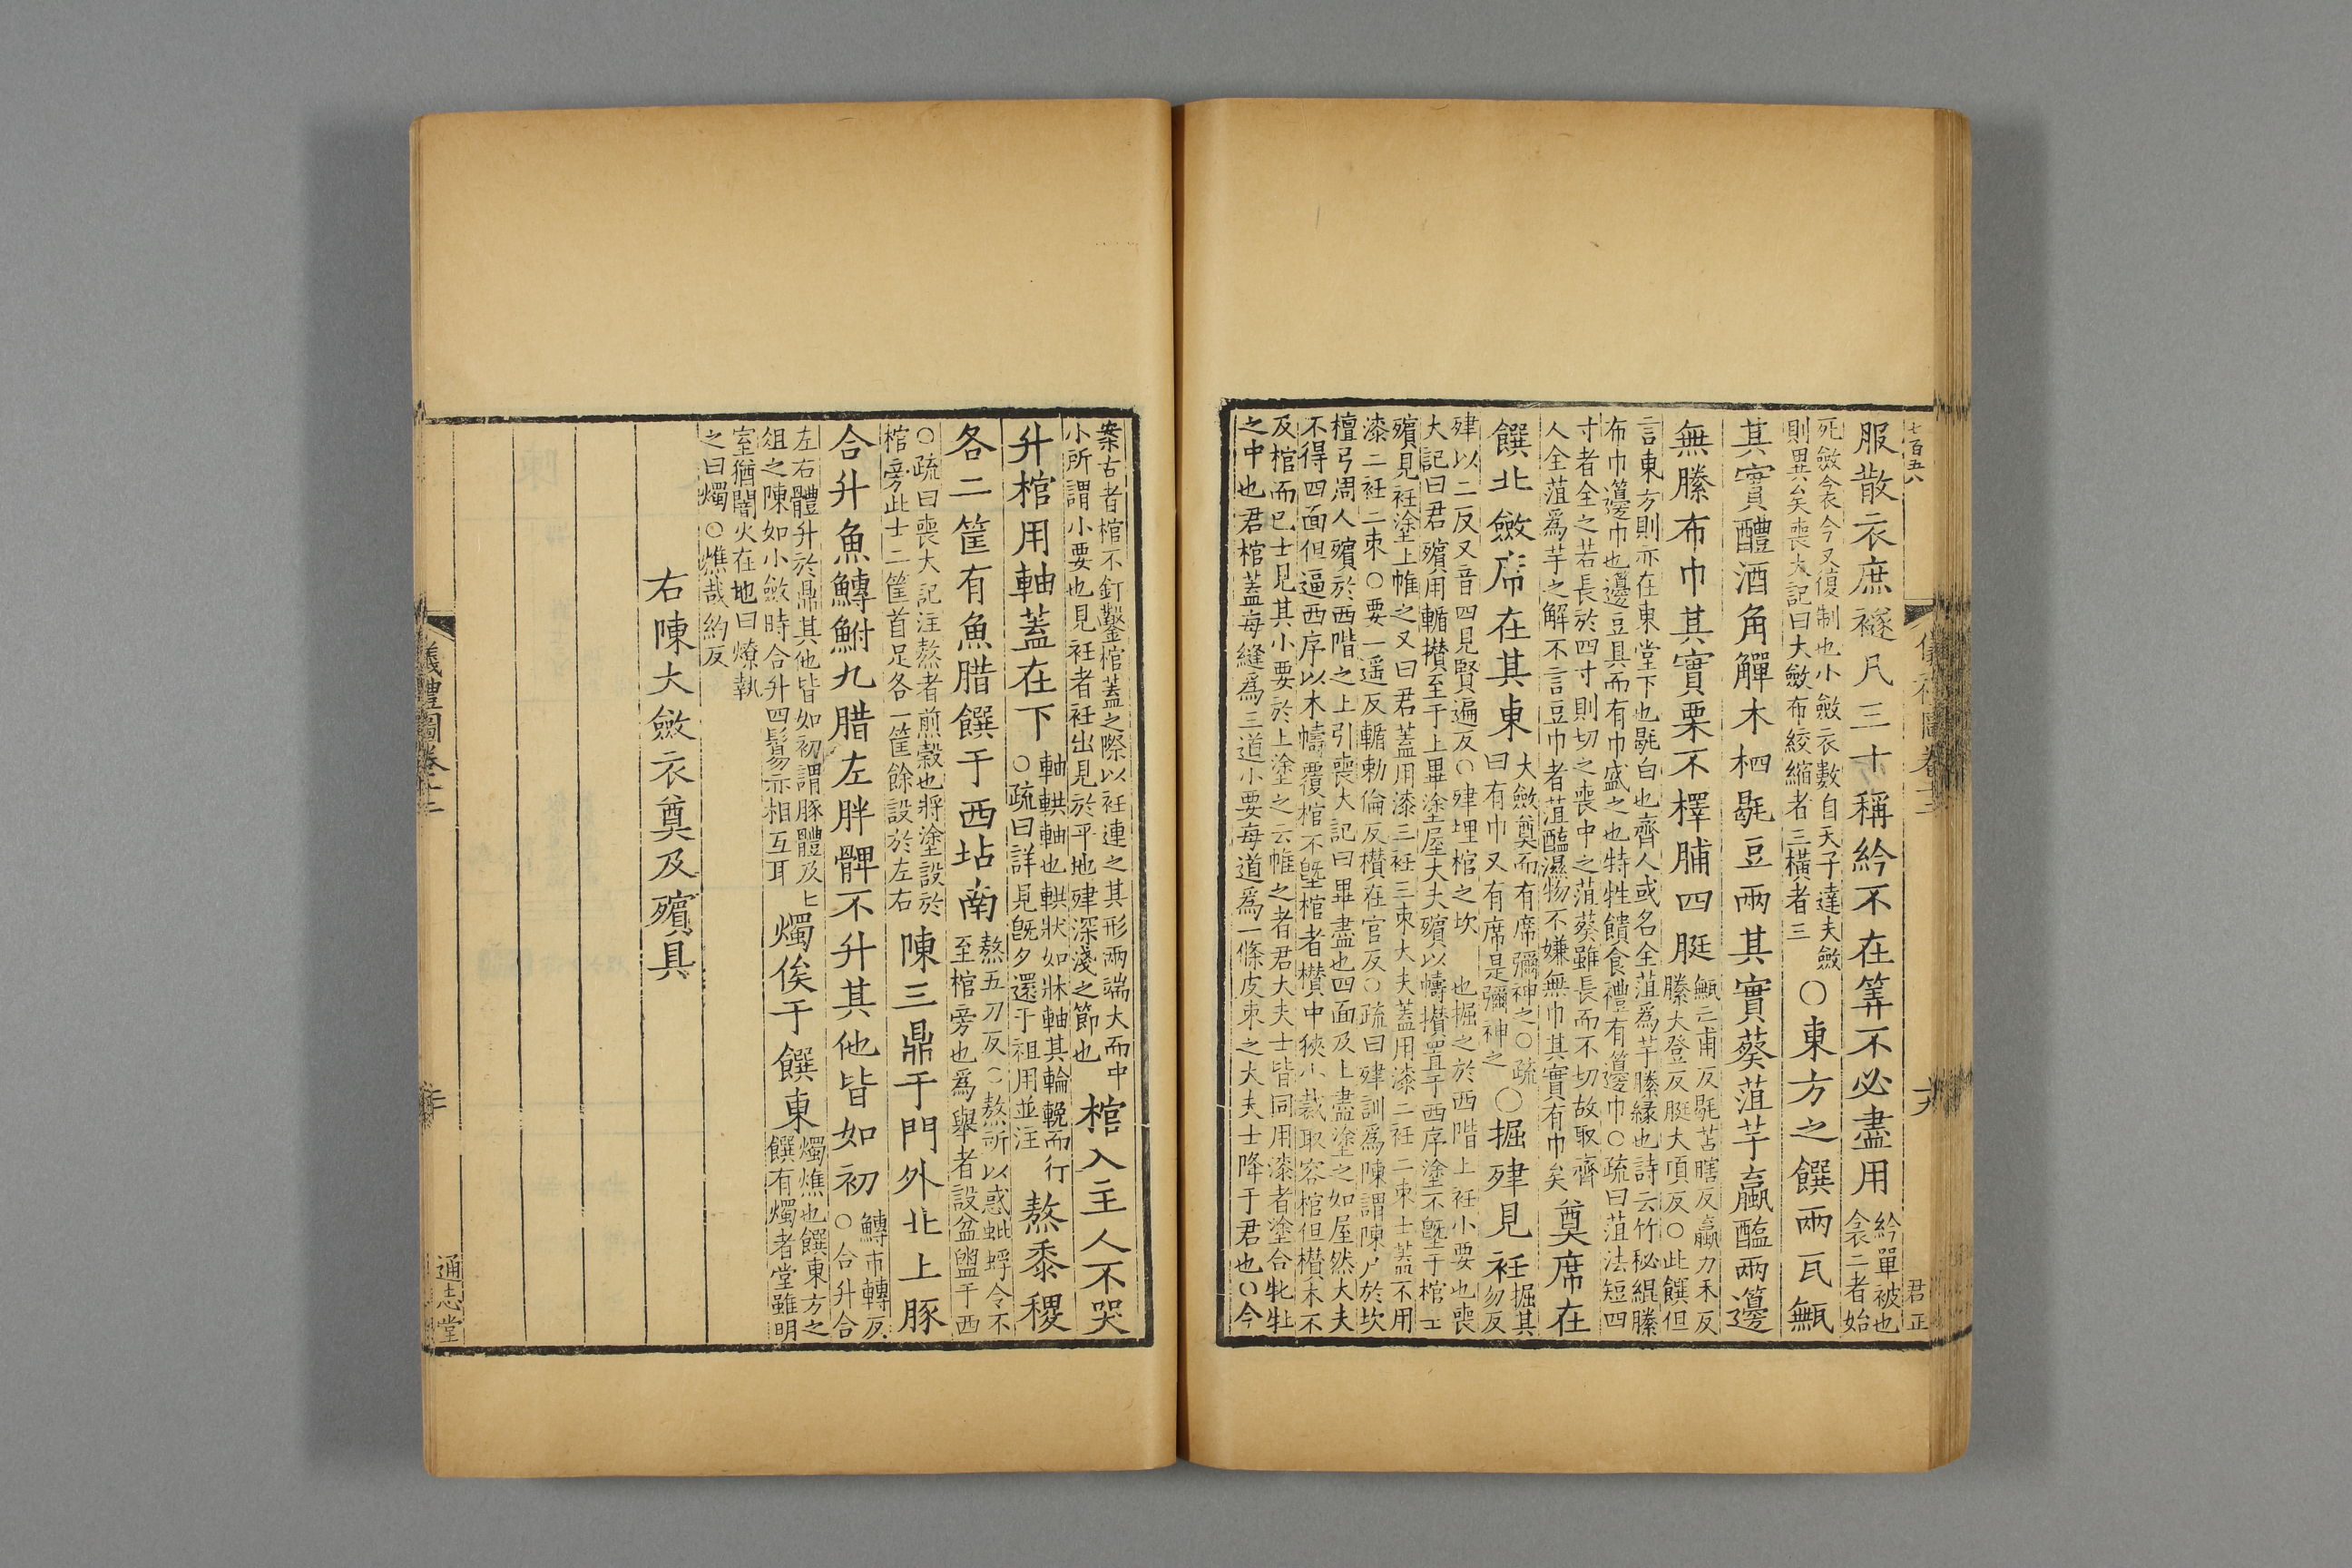 七百五八
儀禮圖卷十二
十六
君正
服散衣庶襚凡三十稱紟不在筭不必盡用紟單被也
衾二者始
死斂衾今又復制也小斂衣數自天子達大夫斂
則異矣喪大記曰大斂布絞縮者三橫者三
○東方之饌兩瓦甒
其實醴酒角觶木柶毼豆兩其實葵菹芋蠃醢兩籩
無縢布巾其實栗不擇脯四脡
甒亡甫反毼苦瞎反蠃力禾反
縢大登反脡大頂反○此饌但
言東方則亦在東堂下也毼白也齊人或名全菹為芋縢緣也詩云竹秘緄縢
布巾籩巾也籩豆具而有巾盛之也特牲饋食禮有籩巾○疏曰菹法短四
寸者全之若長於四寸則切之喪中之菹葵雖長而不切故取齊
人全菹爲芋之解不言豆巾者菹醢濕物不嫌無巾其實有巾矣
奠席在
饌北斂席在其東
大斂奠而有席彌神之○疏
曰有巾又有席是彌神之
○掘肂見衽
掘其
勿反
肂以二反又音四見賢遍反○肂埋棺之坎也掘之於西階上衽小要也喪
大記曰君殯用輴攅至于上畢塗屋大夫殯以幬攅置于西序塗不曁于棺士
殯見衽塗上帷之又曰君蓋用漆三衽三束大夫蓋用漆二衽二束士蓋不用
漆二衽二束○要一遥反輴勅倫反攅在官反○疏曰肂訓爲陳謂陳尸於坎
檀弓周人殯於西階之上引喪大記曰畢盡也四面及上盡塗之如屋然大夫
不得四面但逼西序以木幬覆棺不曁棺者攅中狹小裁取容棺但攅木不
及棺而已士見其小要於上塗之云帷之者君大夫士皆同用漆者塗合牝牡
之中也君棺蓋每縫爲三道小要每道爲一條皮束之大夫士降于君也○今
案古者棺不釘鑿棺蓋之際以衽連之其形兩端大而中
小所謂小要也見衽者衽出見於平地肂深淺之節也
棺入主人不哭
升棺用軸蓋在下
軸輁軸也輁狀如牀軸其輪輓而行
○疏曰詳見既夕還于祖用並注
熬黍稷
各二筐有魚腊饌于西坫南
熬五刀反○熬所以惑蚍蜉令不
至棺旁也爲舉者設盆盥于西
○疏曰喪大記注熬者煎穀也將塗設於
棺旁此士二筐首足各一筐餘設於左右
陳三鼎于門外北上豚
合升魚鱄鮒九腊左胖髀不升其他皆如初
鱄市轉反
○合升合
左右體升於鼎其他皆如初謂豚體及匕
俎之陳如小斂時合升四鬄亦相互耳
燭俟于饌東
燭燋也饌東方之
饌有燭者堂雖明
室猶闇火在地曰燎執
之曰燭○燋哉約反
右陳大斂衣奠及殯具
儀禮圖卷十二
通志堂